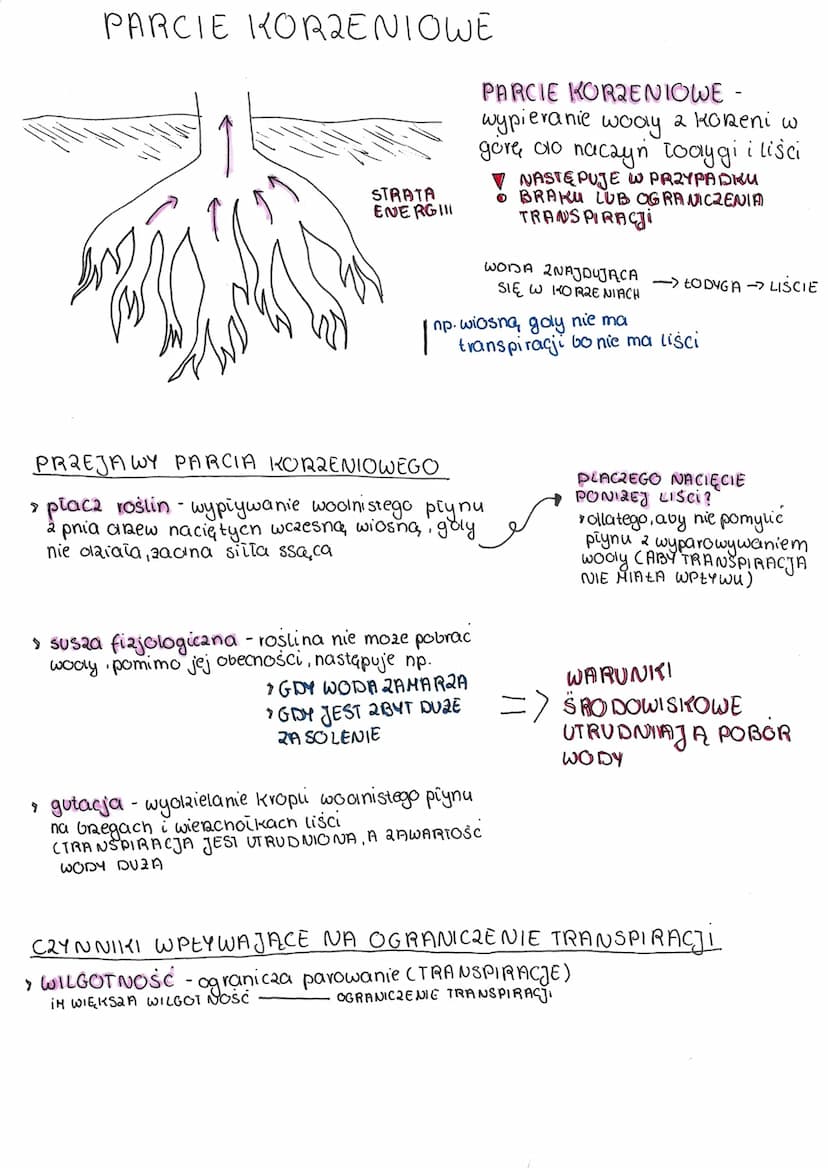 PARCIE KORZENIOWE
PARCIE KORZENIOWE -
wypieranie wody z korzeni w
górę do naczyń łodygi i liści
NASTĘPUJE W PRZYPADKU
BRAKU LUB OGRANICZENIA
TRANSPIRACJI
STRATA
ENERGII
WODA ZNAJDUJĄCA
SIĘ W KORZENIACH → ŁODYGA → LIŚCIE
np. wiosną gdy nie ma
transpiracji bo nie ma liści
PRZEJAWY PARCIA KORZENIOWEGO
płacz roślin - wypływanie wodnistego płynu
z pnia drzew naciętych wczesną wiosną, gdy
nie działa żadna siła ssąca
DLACZEGO NACIĘCIE
PONIŻEJ LIŚCI?
dlatego, aby nie pomylić
płynu z wyparowywaniem
wody (ABY TRANSPIRACJA
NIE MIAŁA WPŁYWU)
susza fizjologiczna - roślina nie może pobrać
wody, pomimo jej obecności, następuje np.
GDY WODA ZAMARZA
GDY JEST ZBYT DUŻE
ZASOLENIE
=> WARUNKI
ŚRODOWISKOWE
UTRUDNIAJĄ POBÓR
WODY
gutacja - wydzielanie kropli wodnistego płynu
na brzegach i wierzchołkach liści
(TRANSPIRACJA JEST UTRUDNIONA, A ZAWARTOŚĆ
WODY DUŻA
CZYNNIKI WPŁYWAJĄCE NA OGRANICZENIE TRANSPIRACJI
WILGOTNOŚĆ - ogranicza parowanie (TRANSPIRACJE)
IM WIĘKSZA WILGOTNOŚĆ — OGRANICZENIE TRANSPIRACJI